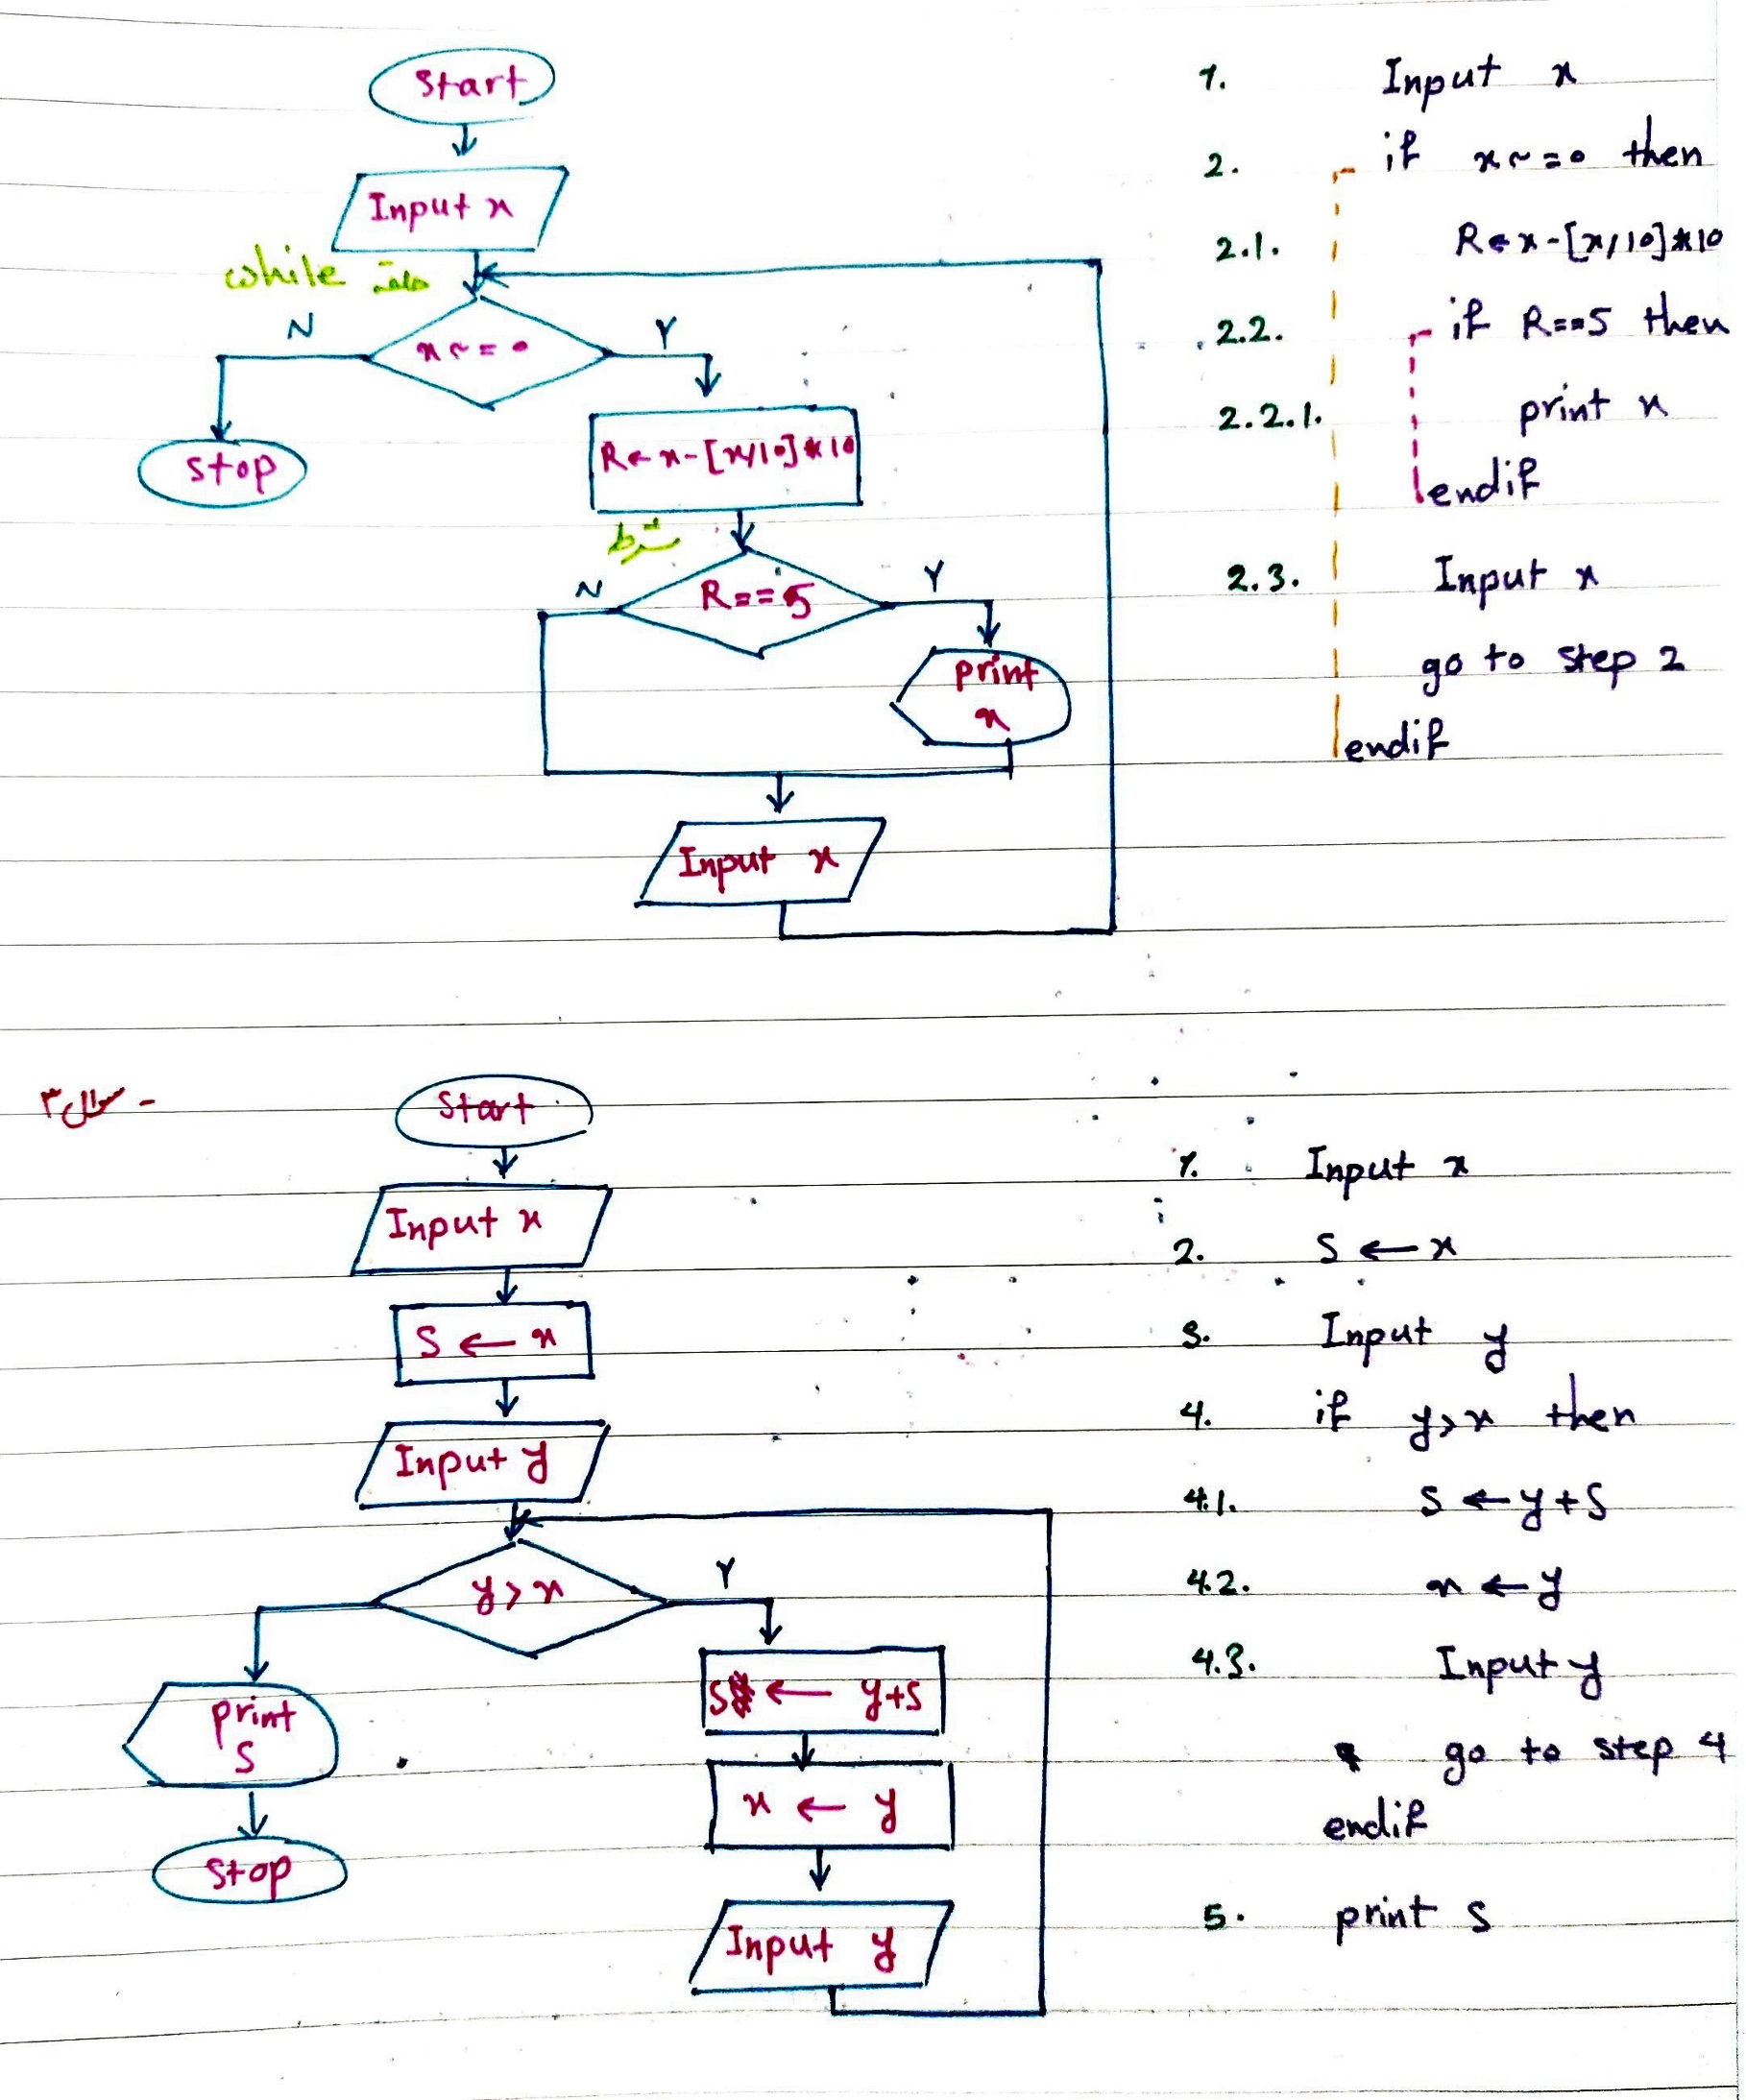 Start
Input x
while حلقه
x ~ = 0
N
Y
stop
R ← x - [x/10] * 10
شرط
R == 5
N
Y
print
x
Input x
1. Input x
2. if x ~ = 0 then
2.1. R ← x - [x/10] * 10
2.2. if R == 5 then
2.2.1. print x
endif
2.3. Input x
go to step 2
endif
سوال ۳ -
Start
Input x
S ← x
Input y
y > x
Y
print
S
stop
S ← y+S
x ← y
Input y
1. Input x
2. S ← x
3. Input y
4. if y > x then
4.1. S ← y+S
4.2. x ← y
4.3. Input y
go to step 4
endif
5. print S